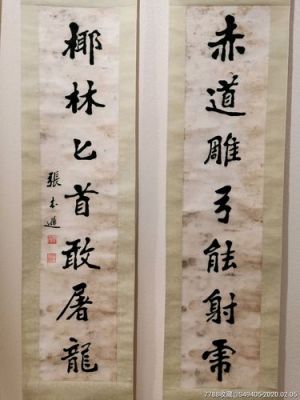 赤道雕弓能射虎
椰林匕首敢屠龍
張
7788收藏@S49405-2020.02.05